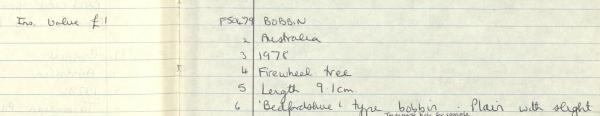 Ins. Value £1
FSA79 BOBBIN
2 Australia
3 1978
4 Firewheel tree
5 Length 9.1cm
6 'Bedfordshire' type bobbin. Plain with slight